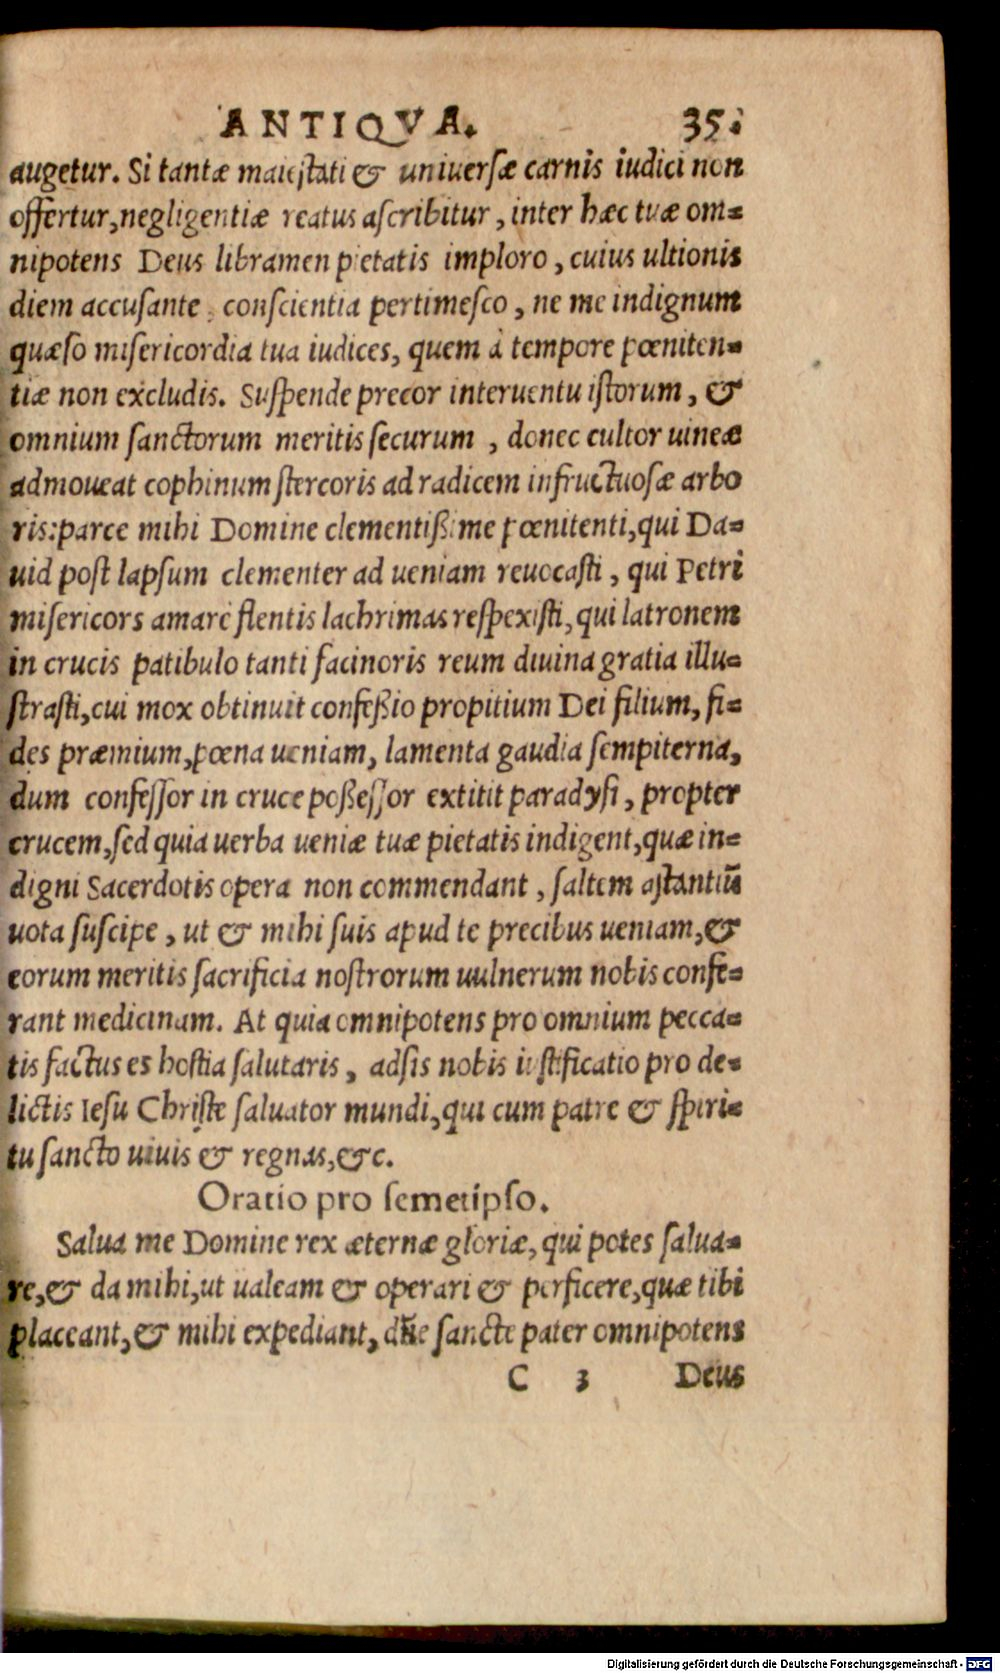 ANTIQVA. 35.
augetur. Si tantæ maieſtati & uniuerſæ carnis iudici non
offertur,negligentiæ reatus aſcribitur, inter hæc tuæ om⸗
nipotens Deus libramen pietatis imploro, cuius ultionis
diem accuſante conſcientia pertimeſco, ne me indignum
quæſo miſericordia tua iudices, quem à tempore pœniten⸗
tiæ non excludis. Suſpende precor interuentu iſtorum, &
omnium ſanctorum meritis ſecurum, donec cultor uineæ
admoueat cophinum ſtercoris ad radicem infructuoſæ arbo
ris:parce mihi Domine clementißime pœnitenti,qui Da⸗
uid poſt lapſum clementer ad ueniam reuocaſti, qui Petri
miſericors amarè flentis lachrimas reſpexiſti,qui latronem
in crucis patibulo tanti facinoris reum diuina gratia illu⸗
ſtraſti,cui mox obtinuit confeßio propitium Dei filium, fi⸗
des præmium,pœna ueniam, lamenta gaudia ſempiterna,
dum confeſſor in cruce poßeſſor extitit paradyſi, propter
crucem,ſed quia uerba ueniæ tuæ pietatis indigent,quæ in⸗
digni Sacerdotis opera non commendant, ſaltem aſtantiũ
uota ſuſcipe, ut & mihi ſuis apud te precibus ueniam,&
eorum meritis ſacrificia noſtrorum uulnerum nobis confe⸗
rant medicinam. At quia omnipotens pro omnium pecca⸗
tis factus es hoſtia ſalutaris, adſis nobis iuſtificatio pro de⸗
lictis Ieſu Chriſte ſaluator mundi,qui cum patre & ſpiri⸗
tu ſancto uiuis & regnas,&c.
Oratio pro ſemetipſo.
Salua me Domine rex æternæ gloriæ, qui potes ſalua⸗
re,& da mihi,ut ualeam & operari & perficere,quæ tibi
placeant,& mihi expediant, dñe ſancte pater omnipotens
C 3 Deus
Digitalisierung gefördert durch die Deutsche Forschungsgemeinschaft - DFG